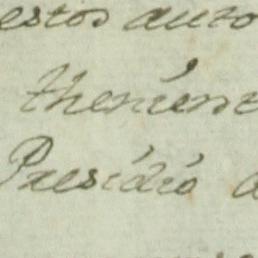 estos auto
theniente
Presidio d